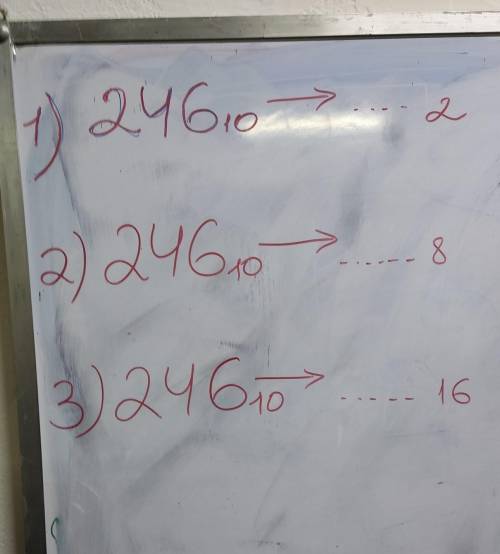 1) 246₁₀ → ..... ₂
2) 246₁₀ → ...... ₈
3) 246₁₀ → ..... ₁₆